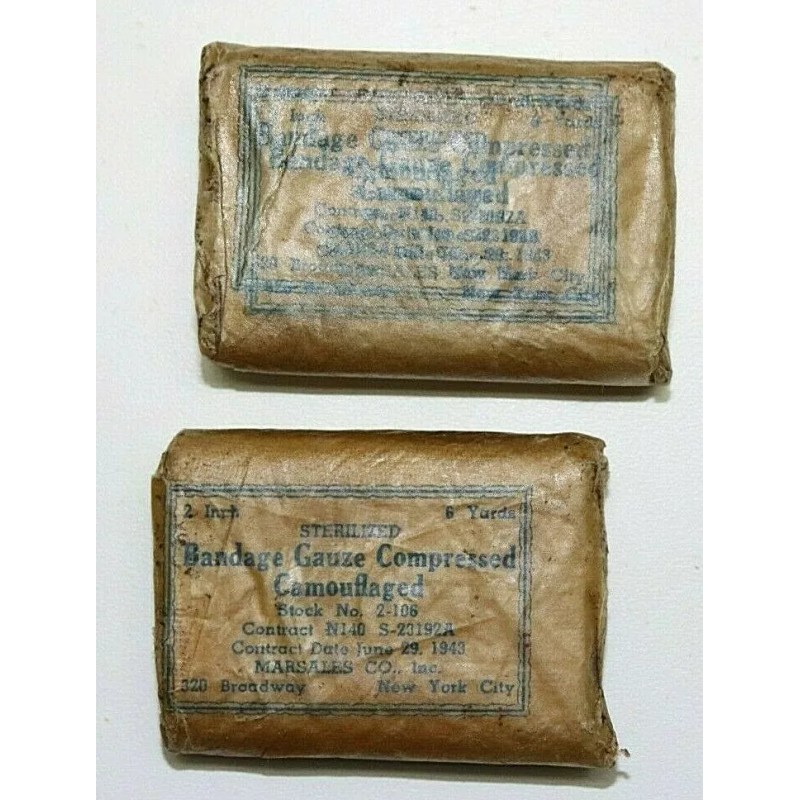 Inch 6 Yards
Bandage Compressed
Bandage Gauze Compressed
Camouflaged
Contract N140 S-23192A
Contract Date June S-23192A
1943
320 Broadway New York City
New York City
2 Inch 6 Yards
STERILIZED
Bandage Gauze Compressed
Camouflaged
Stock No. 2-106
Contract N140 S-23192A
Contract Date June 29, 1943
MARSALES CO., Inc.
320 Broadway New York City